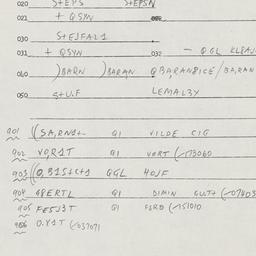 020 S+EPS S+EPSN
021 + QSYN
030 S+EJFALI
031 + QSYN 032 - QGL KLFAJ
040 )BARN )BARAN QBARANBICE/BARAN
050 S+U.F LEMALZY
901 ((SA,RNI+ GI VILDE CIG
902 VO,RIT GI VORT (-173060
903 ((O,BIS+C+I GGL HOJF
904 GPERTL GI DIMIN GUT+ (-07403
905 FESJ3T GI FORD (-151010
906 O.YIT (-037071